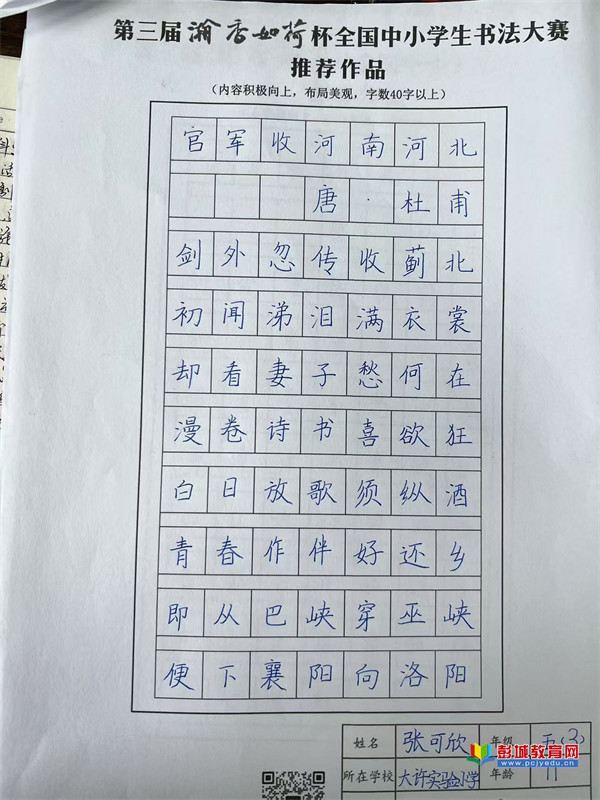 第三届瀚香如荷杯全国中小学生书法大赛
推荐作品
（内容积极向上，布局美观，字数40字以上）
官军收河南河北
唐·杜甫
剑外忽传收蓟北
初闻涕泪满衣裳
却看妻子愁何在
漫卷诗书喜欲狂
白日放歌须纵酒
青春作伴好还乡
即从巴峡穿巫峡
便下襄阳向洛阳
姓名 张可欣 年级 五(3)
所在学校 大许实验小学 年龄 11
彭城教育网
www.pcjyedu.cn